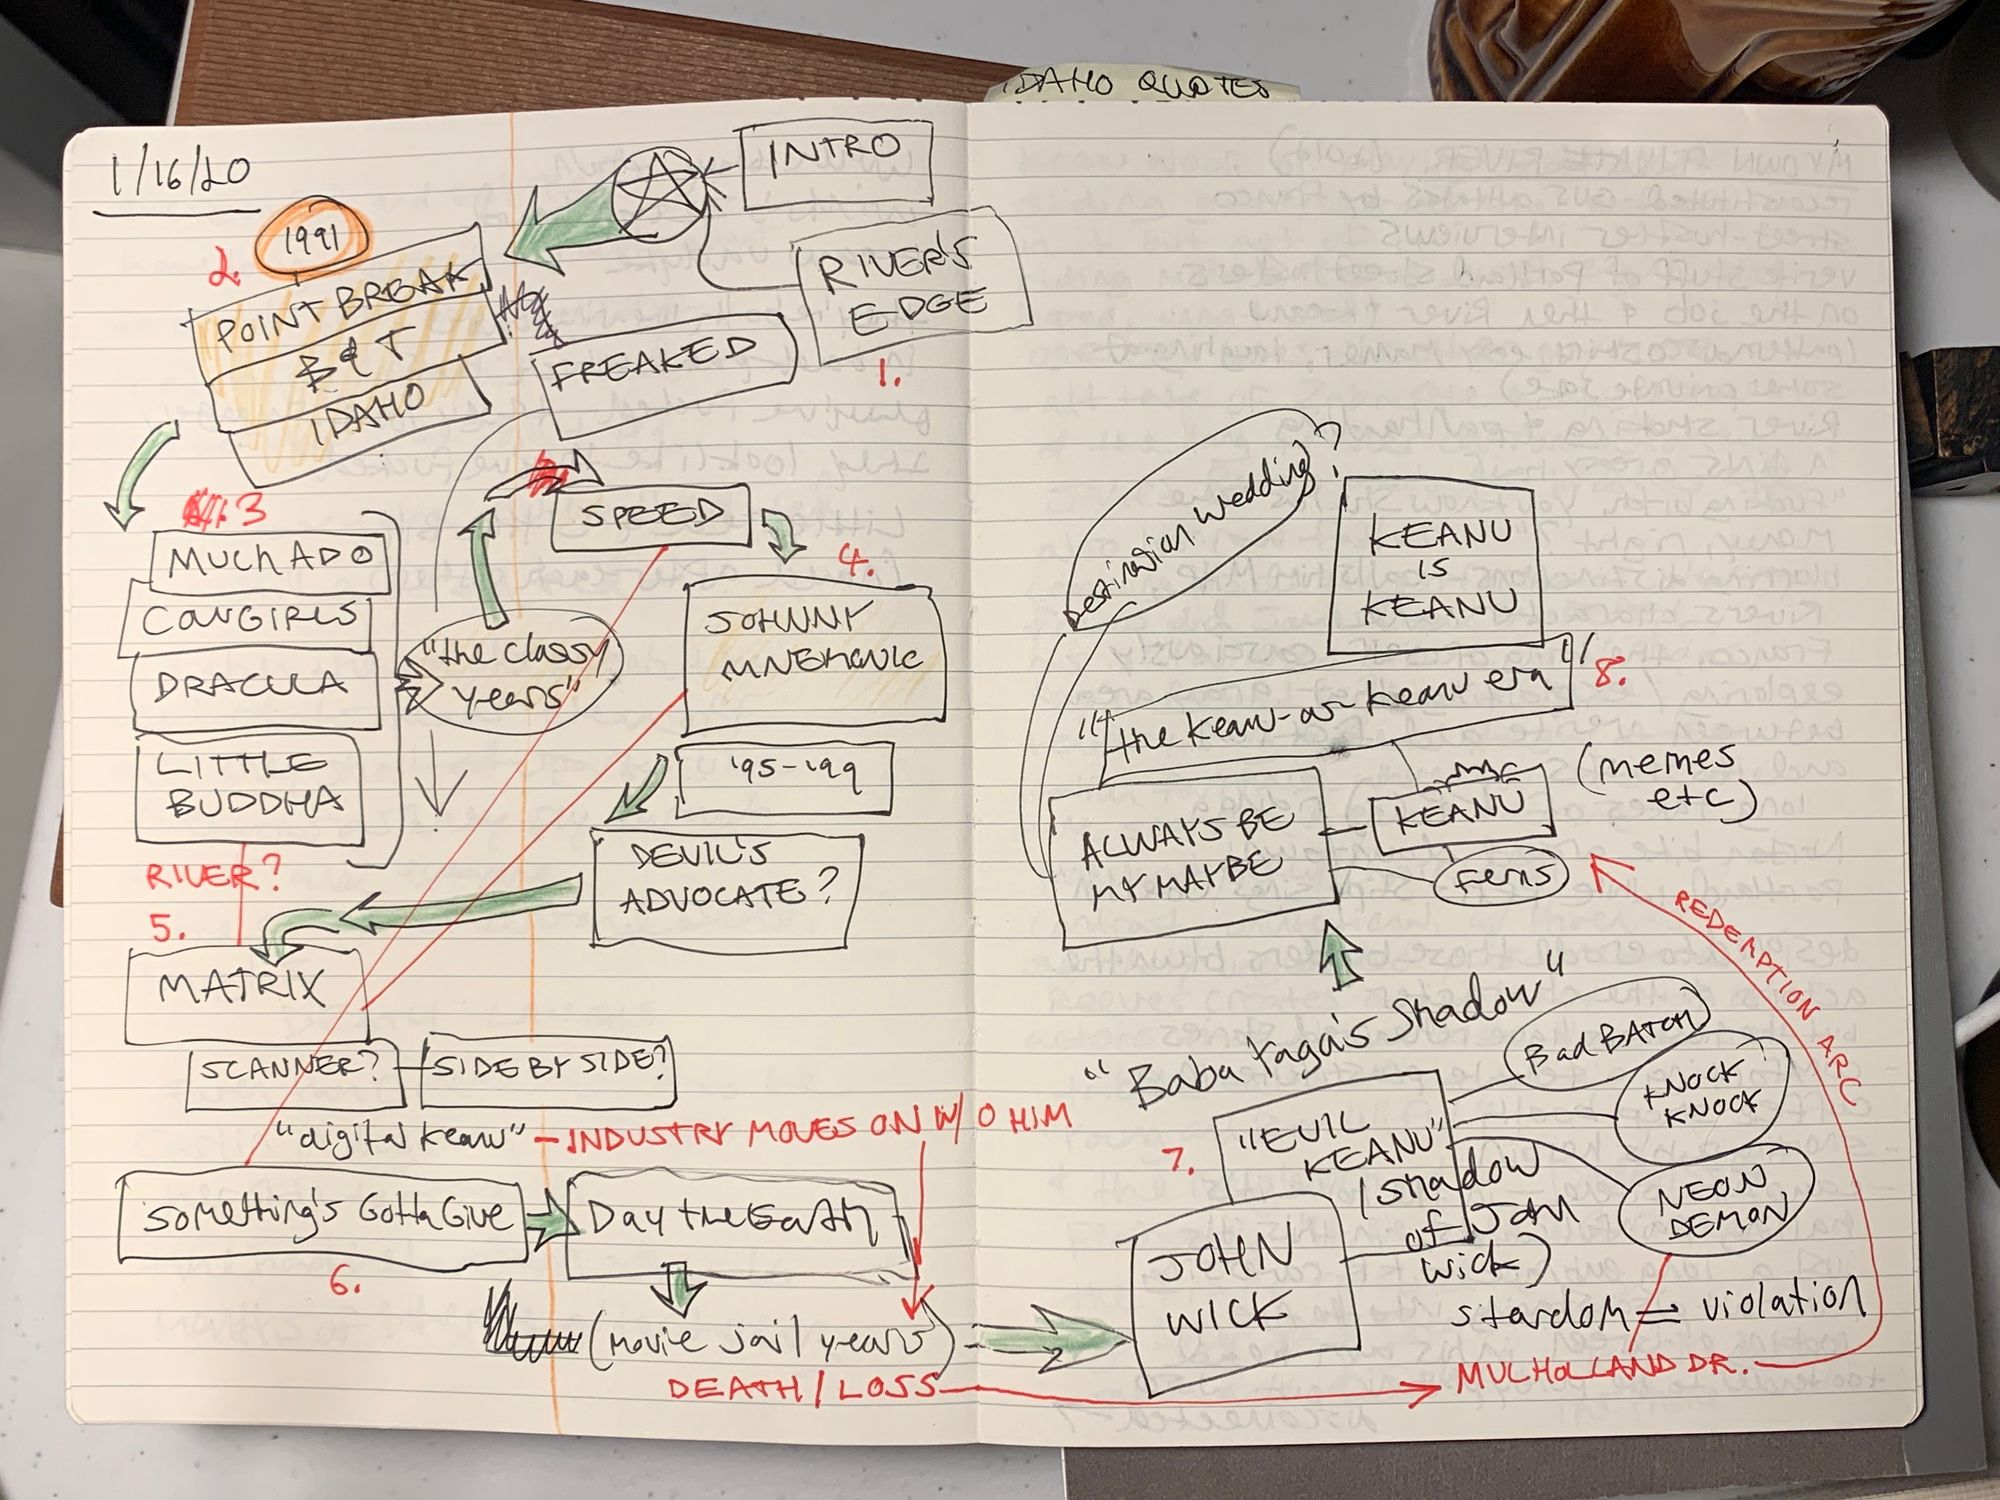 IDAHO QUOTES
1/16/20
INTRO
RIVER'S
EDGE
1.
2.
1991
POINT BREAK
B & T
IDAHO
FREAKED
3
MUCH ADO
COWGIRLS
DRACULA
LITTLE
BUDDHA
"the classy
years"
SPEED
4.
JOHNNY
MNEMONIC
'95-'99
DEVIL'S
ADVOCATE?
RIVER?
5.
MATRIX
SCANNER?
SIDE BY SIDE?
"digital Keanu" - INDUSTRY MOVES ON W/O HIM
Something's Gotta Give
Day the Earth
6.
(movie jail years)
DEATH / LOSS
Destination Wedding?
KEANU
IS
KEANU
"the Keanu-as-Keanu era"
8.
ALWAYS BE
MY MAYBE
KEANU
(memes
etc)
REDEMPTION ARC
"Baba Yaga's Shadow"
7.
"EVIL
KEANU"
(shadow
of John
Wick)
Bad BATCH
KNOCK
KNOCK
NEON
DEMON
JOHN
WICK
stardom = violation
MULHOLLAND DR.